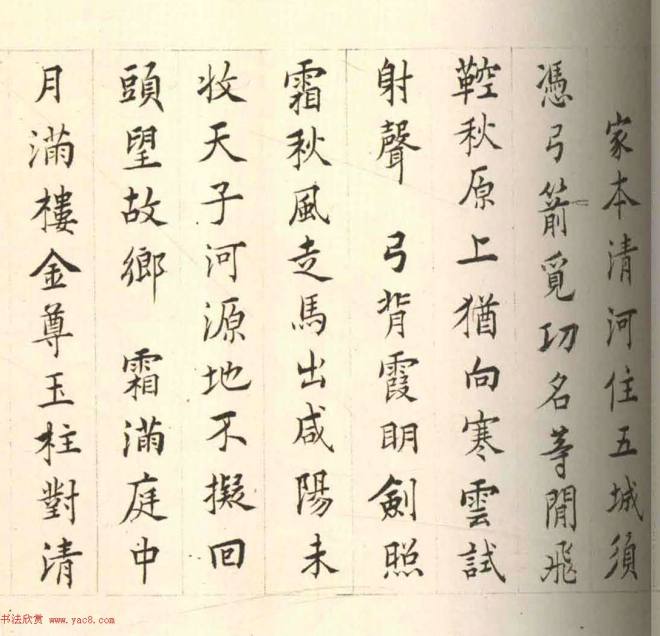 家本清河住五城須
憑弓箭覓功名等閒飛
鞚秋原上猶向寒雲試
射聲 弓背霞明劍照
霜秋風走馬出咸陽未
收天子河源地不擬回
頭望故鄉 霜滿庭中
月滿樓金尊玉柱對清
书法欣赏 www.yac8.com